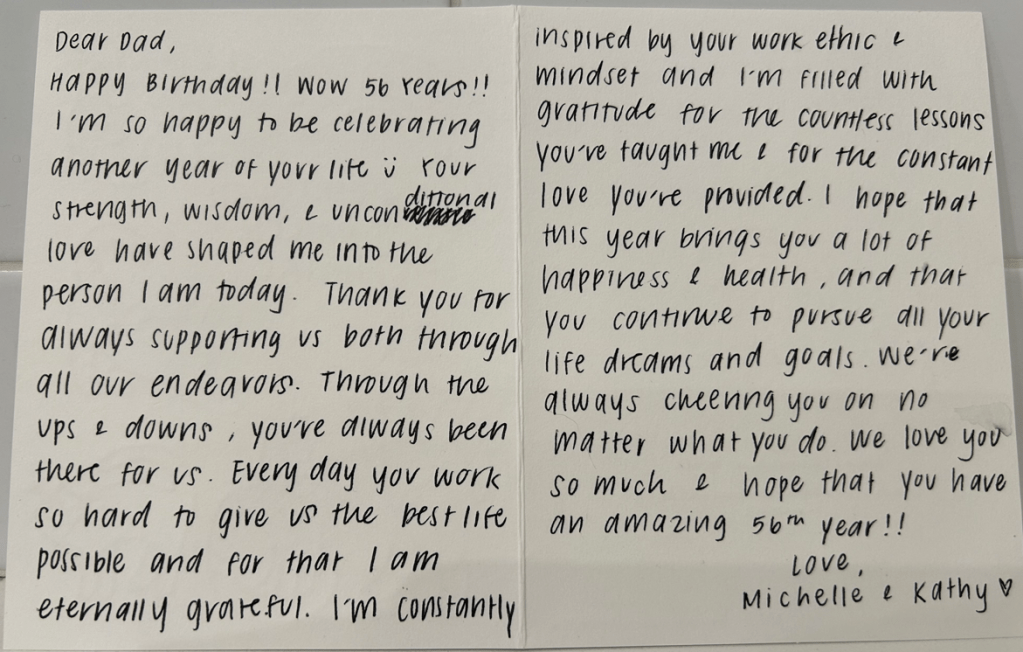 Dear Dad,
Happy Birthday!! Wow 56 Years!!
I'm so happy to be celebrating
another year of your life ü Your
strength, wisdom, & unconditional
love have shaped me into the
person I am today. Thank you for
always supporting us both through
all our endeavors. Through the
ups & downs, you're always been
there for us. Every day you work
so hard to give us the best life
possible and for that I am
eternally grateful. I'm constantly
inspired by your work ethic &
mindset and I'm filled with
gratitude for the countless lessons
you've taught me & for the constant
love you're provided. I hope that
this year brings you a lot of
happiness & health, and that
you continue to pursue all your
life dreams and goals. We're
always cheering you on no
matter what you do. We love you
so much & hope that you have
an amazing 56th year!!
Love,
Michelle & Kathy ♡